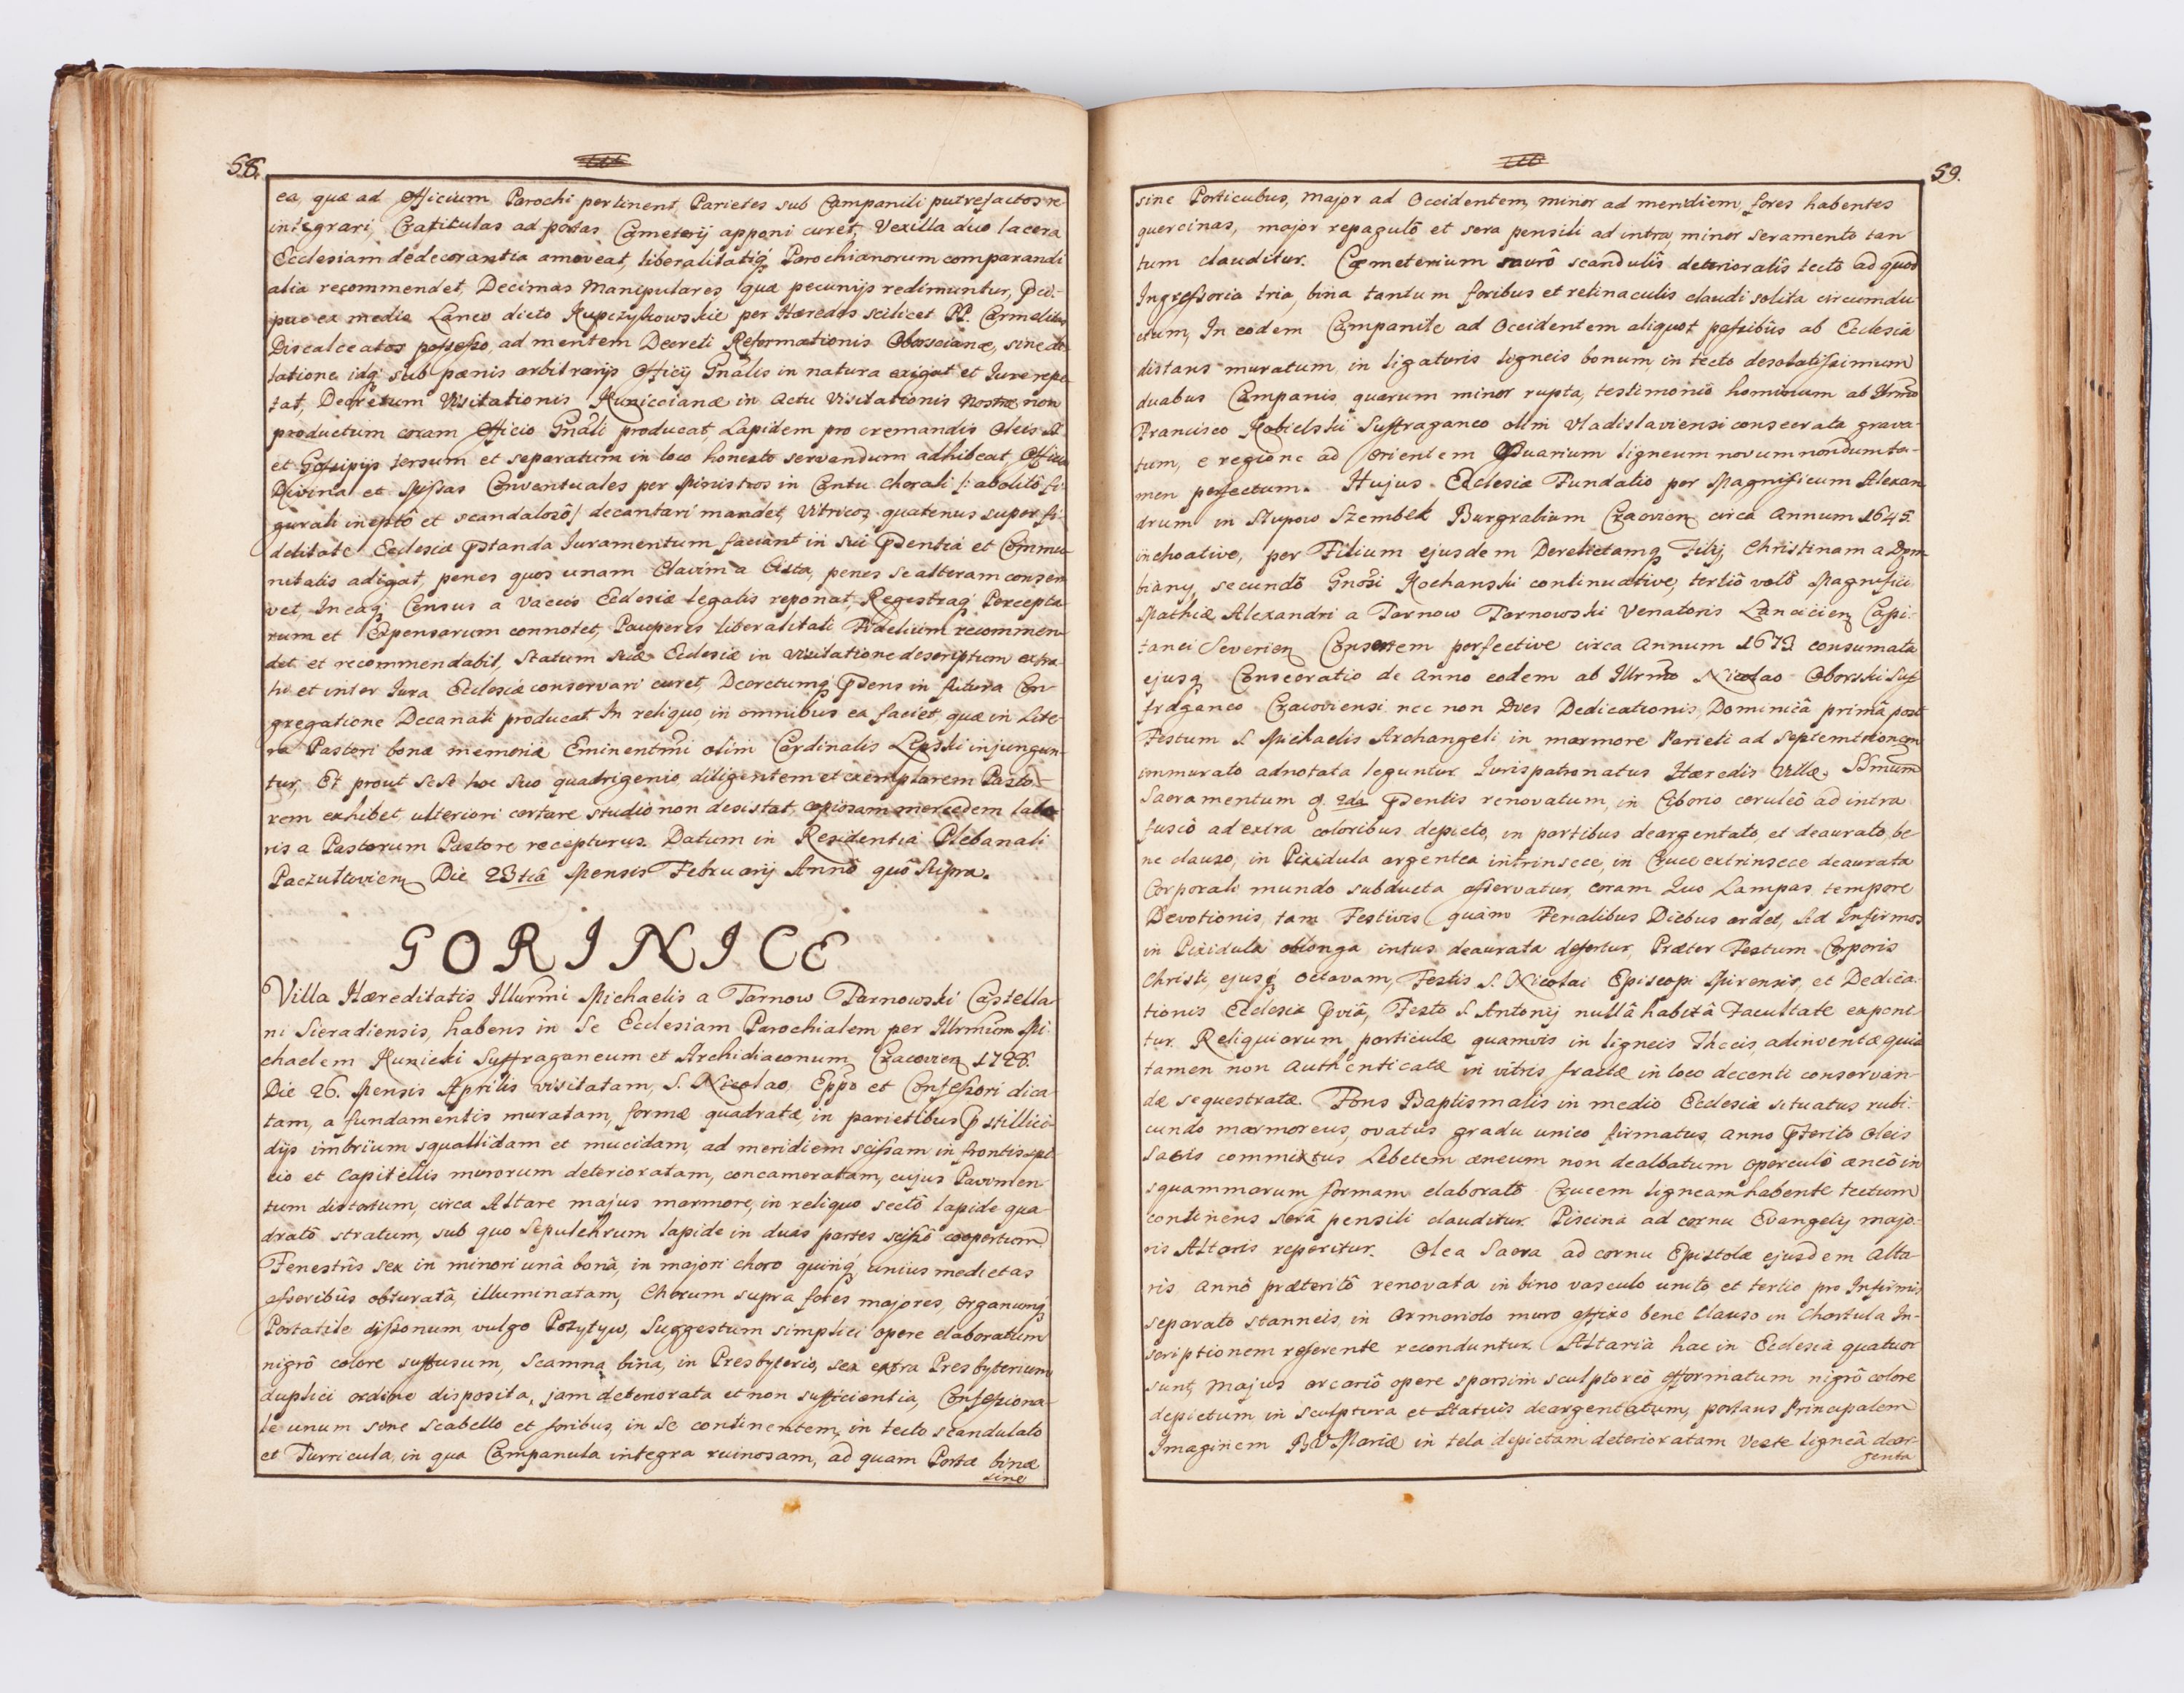 58.
ea, quæ ad Officium Parochi pertinent, Parietes sub Campanili putrefactos re
integrari, Craticulas ad portas Cæmeterij apponi curet, Vexilla duo lacera
Ecclesiam dedecorantia amoveat, liberalitatiq́ Parochianorum comparandi
alia recommendet, Decimas Manipulares quæ pecunijs redimuntur,
puo ex medio Laneo dicto Kupczykowskie per Hæredes scilicet PP. Carmelitas
Discalceatos possesso, ad mentem Decreti Reformationis Oborscianæ, sine di
latione idq́ sub pænis arbitrarijs Officij Gnâlis in natura exigat et Jure repe
tat, Decretum Visitationis Kunicianæ in actu Visitationis Nostræ non
productum coram Officio Gnâli producat, Lapidem pro cremandis Oleis St
et Gossipijs tersum et separatum in loco honesto servandum adhibeat Officia
Divina et Missas Conventuales per Ministros in Cantu Chorali /: abolitô fi
gurali ineptô et scandalosô/ decantari mandet, Vitricos quatenus super fi
delitate Ecclesiæ pstanda Juramentum faciant in sui psentiâ et Commu
nitatis adigat, penes quos unam Clavim a Cista, penes se alteram conser
vet, In eaq́ Census a Vaccis Ecclesiæ legatis reponat, Regestraq́ Percepta
rum et Expensarum connotet, Pauperes liberalitati Fidelium recommen
det et recommendabit, Statum suæ Ecclesiæ in visitatione descriptum extra
hi et inter Jura Ecclesiæ conservari curet, Decretumq́ psens in futura Con
gregatione Decanali producat. In reliquo in omnibus ea faciet, quæ in Lite
ra Pastori bonæ memoriæ Eminentmi olim Cardinalis Lipski injungun
tur, Et prout sese hoc suo quadrigenio diligentem et exemplarem Pasto
rem exhibet, ulteriori certare studio non desistat, copiosam mercedem labo
ris a Pastorum Pastore recepturus. Datum in Residentia Plebanali
Paczułtovien Die 23tiâ Mensis Februarij Annô quô Supra.
GORINICE
Villa Hæreditatis Illurmi Michaelis a Tarnow Tarnowski Castella
ni Sieradiensis, habens in Se Ecclesiam Parochialem per Illrmum Mi
chaelem Kunicki Suffraganeum et Archidiaconum Cracovien 1728.
Die 26. Mensis Aprilis visitatam, S. Nicolao Eppo et Confessori dica
tam, a fundamentis muratam, formæ quadratæ, in parietibus p stillici
dijs imbrium squallidam et mucidam, ad meridiem scissam in frontispi
cio et Capitellis murorum deterioratam, concameratam, cujus Pavimen
tum distortum, circa Altare majus marmore, in reliquo sectô lapide qua
dratô stratum, sub quo Sepulchrum lapide in duas partes scissô coopertum
Fenestris sex in minori unâ bonâ, in majori choro quinq́, unius medietas
Asseribus obturatâ, illuminatam, Chorum supra fores majores, Organumq́
Portatile dissonum, vulgo Pozytyw, Suggestum simplici opere elaboratum
nigrô colore suffusum, Scamna bina, in Presbyterio, sex extra Presbyterium
duplici ordine disposita, jam deteriorata et non sufficientia, Confessiona
le unum sine Scabello et foribus, in Se continentem, in tecto scandulato
et Turricula, in qua Campanula integra ruinosam, ad quam Portæ binæ
sine
59.
sine Porticubus, major ad Occidentem, minor ad meridiem, fores habentes
quercinas, major repagulô et sera pensili ad intra, minor seramento tan
tum clauditur. Cæmeterium murô scandulis deterioratis tectô ad quod
Ingressoria tria, bina tantum foribus et retinaculis claudi solita circumdu
ctum, In eodem Campanile ad Occidentem aliquot passibus ab Ecclesia
distans muratum, in ligaturis ligneis bonum, in tecto desolatissimum
duabus Campanis, quarum minor rupta, testimonio hominum ab Illrmo
Francisco Kobielski Suffraganeo olim Vladislaviensi consecrata grava
tum, e regione ad Orientem Ossuarium ligneum novum nondum ta
men perfectum. Hujus Ecclesiæ Fundatio per Magnificum Alexan
drum in Słupow Szembek Burgrabium Cracovien circa Annum 1645.
inchoative, per Filium ejusdem Derelictamq́ Filij Christinam a Dem
biany, secundô Gnosi Kochanski continuative, tertiô votô Magnifici
Mathiæ Alexandri a Tarnow Tarnowski Venatoris Lancicien Capi
tanei Severien Consortem perfective circa Annum 1673. consumata
ejusq́ Consecratio de Anno eodem ab Illrmo Nicolao Oborski Suf
fraganeo Cracoviensi nec non Dies Dedicationis, Dominicâ primâ post
Festum S. Michaelis Archangeli in marmore Parieti ad Septemtrionem
immurato adnotata leguntur. Jurispatronatus Hæredis Villæ. SSmum
Sacramentum psentis renovatum, in Ciborio ceruleô ad intra
fusiô ad extra coloribus depicto, in partibus deargentato, et deaurato, be
ne clauso, in Pixidula argentea intrinsece, in Cruce extrinsece deaurata
Corporali mundo subducta asservatur, coram Quo Lampas tempore
Devotionis, tam Festivis quàm Ferialibus Diebus ardet, Ad Infirmos
in Pixidula oblonga intus deaurata defertur, Præter Festum Corporis
Christi, ejusq́ Octavam, Festis S. Nicolai Episcopi Mirensis, et Dedica
tionis Ecclesiæ pviâ, Festo S. Antonij nullâ habitâ Facultate exponi
tur. Reliquiarum particulæ quamvis in ligneis Thecis, adinventæ quia
tamen non Authenticatæ in vitris fractæ in loco decenti conservan
dæ sequestratæ. Fons Baptismalis in medio Ecclesiæ situatus rubi
cundo marmoreus, ovatus, gradu unico firmatus, anno pterito Oleis
Sacris commixtus Lebetem æneum non dealbatum operculô æneô in
squammarum formam elaboratô Crucem ligneam habente tectum
continens serâ pensili clauditur. Piscina ad cornu Evangelij majo
ris Altaris reperitur. Olea Sacra ad cornu Epistolæ ejusdem Alta
ris Annô præteritô renovata in bino vasculo unito, et tertio pro Infirmis
separato stanneis, in Armariolo muro affixo bene Clauso in Chartula In-
scriptionem referente reconduntur. Altaria hac in Ecclesia quatuor
sunt, Majus arcariô opere sparsim sculptoreô efformatum nigrô colore
depictum in Sculptura et Statuis deargentatum, portans Principalem
Imaginem BVMariæ in tela depictam deterioratam Veste ligneâ dear-
genta